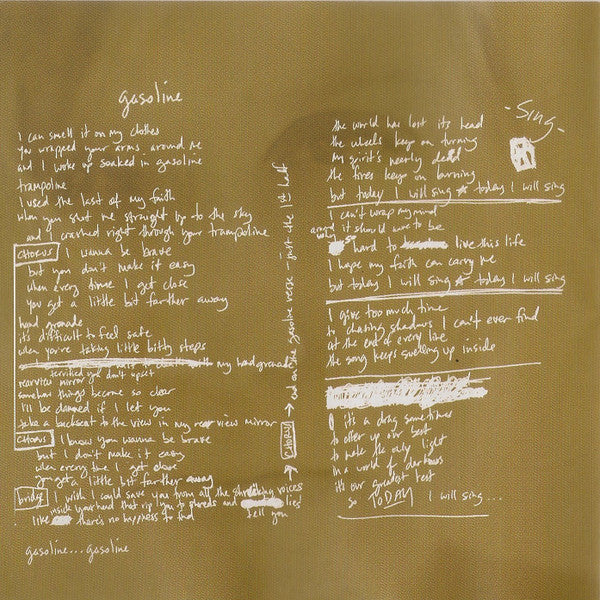 gasoline
I can smell it on my clothes
you wrapped your arms around me
and I woke up soaked in gasoline
trampoline
I used the last of my faith
when you shot me straight up to the sky
and I crashed right through your trampoline
CHORUS I wanna be brave
but you don't make it easy
when every time I get close
you get a little bit farther away
hand grenade
it's difficult to feel safe
when you're taking little bitty steps
with my hand grenade
terrified you don't upset
rearview mirror
somehow things become so clear
I'll be damned if I let you
take a backseat to the view in my rear view mirror
CHORUS I know you wanna be brave
but I don't make it easy
when every time I get close
you get a little bit farther away
bridge I wish I could save you from all the voices
inside your head that rip you to shreds and lies
like there's no happiness to find tell you
gasoline... gasoline
CHORUS → end on the gasoline verse - just the 1st half
- Sing -
the world has lost its head
the wheels keep on turning
my spirit's nearly dead
the fires keep on burning
but today I will sing ★ today I will sing
I can't wrap my mind
around why it should have to be
so hard to live this life
I hope my faith can carry me
but today I will sing ★ today I will sing
I give too much time
to chasing shadows I can't ever find
at the end of every line
the song keeps swelling up inside
it's a drag sometimes
to offer up our best
to make the only light
in a world of darkness
it's our greatest test
so TODAY I will sing...